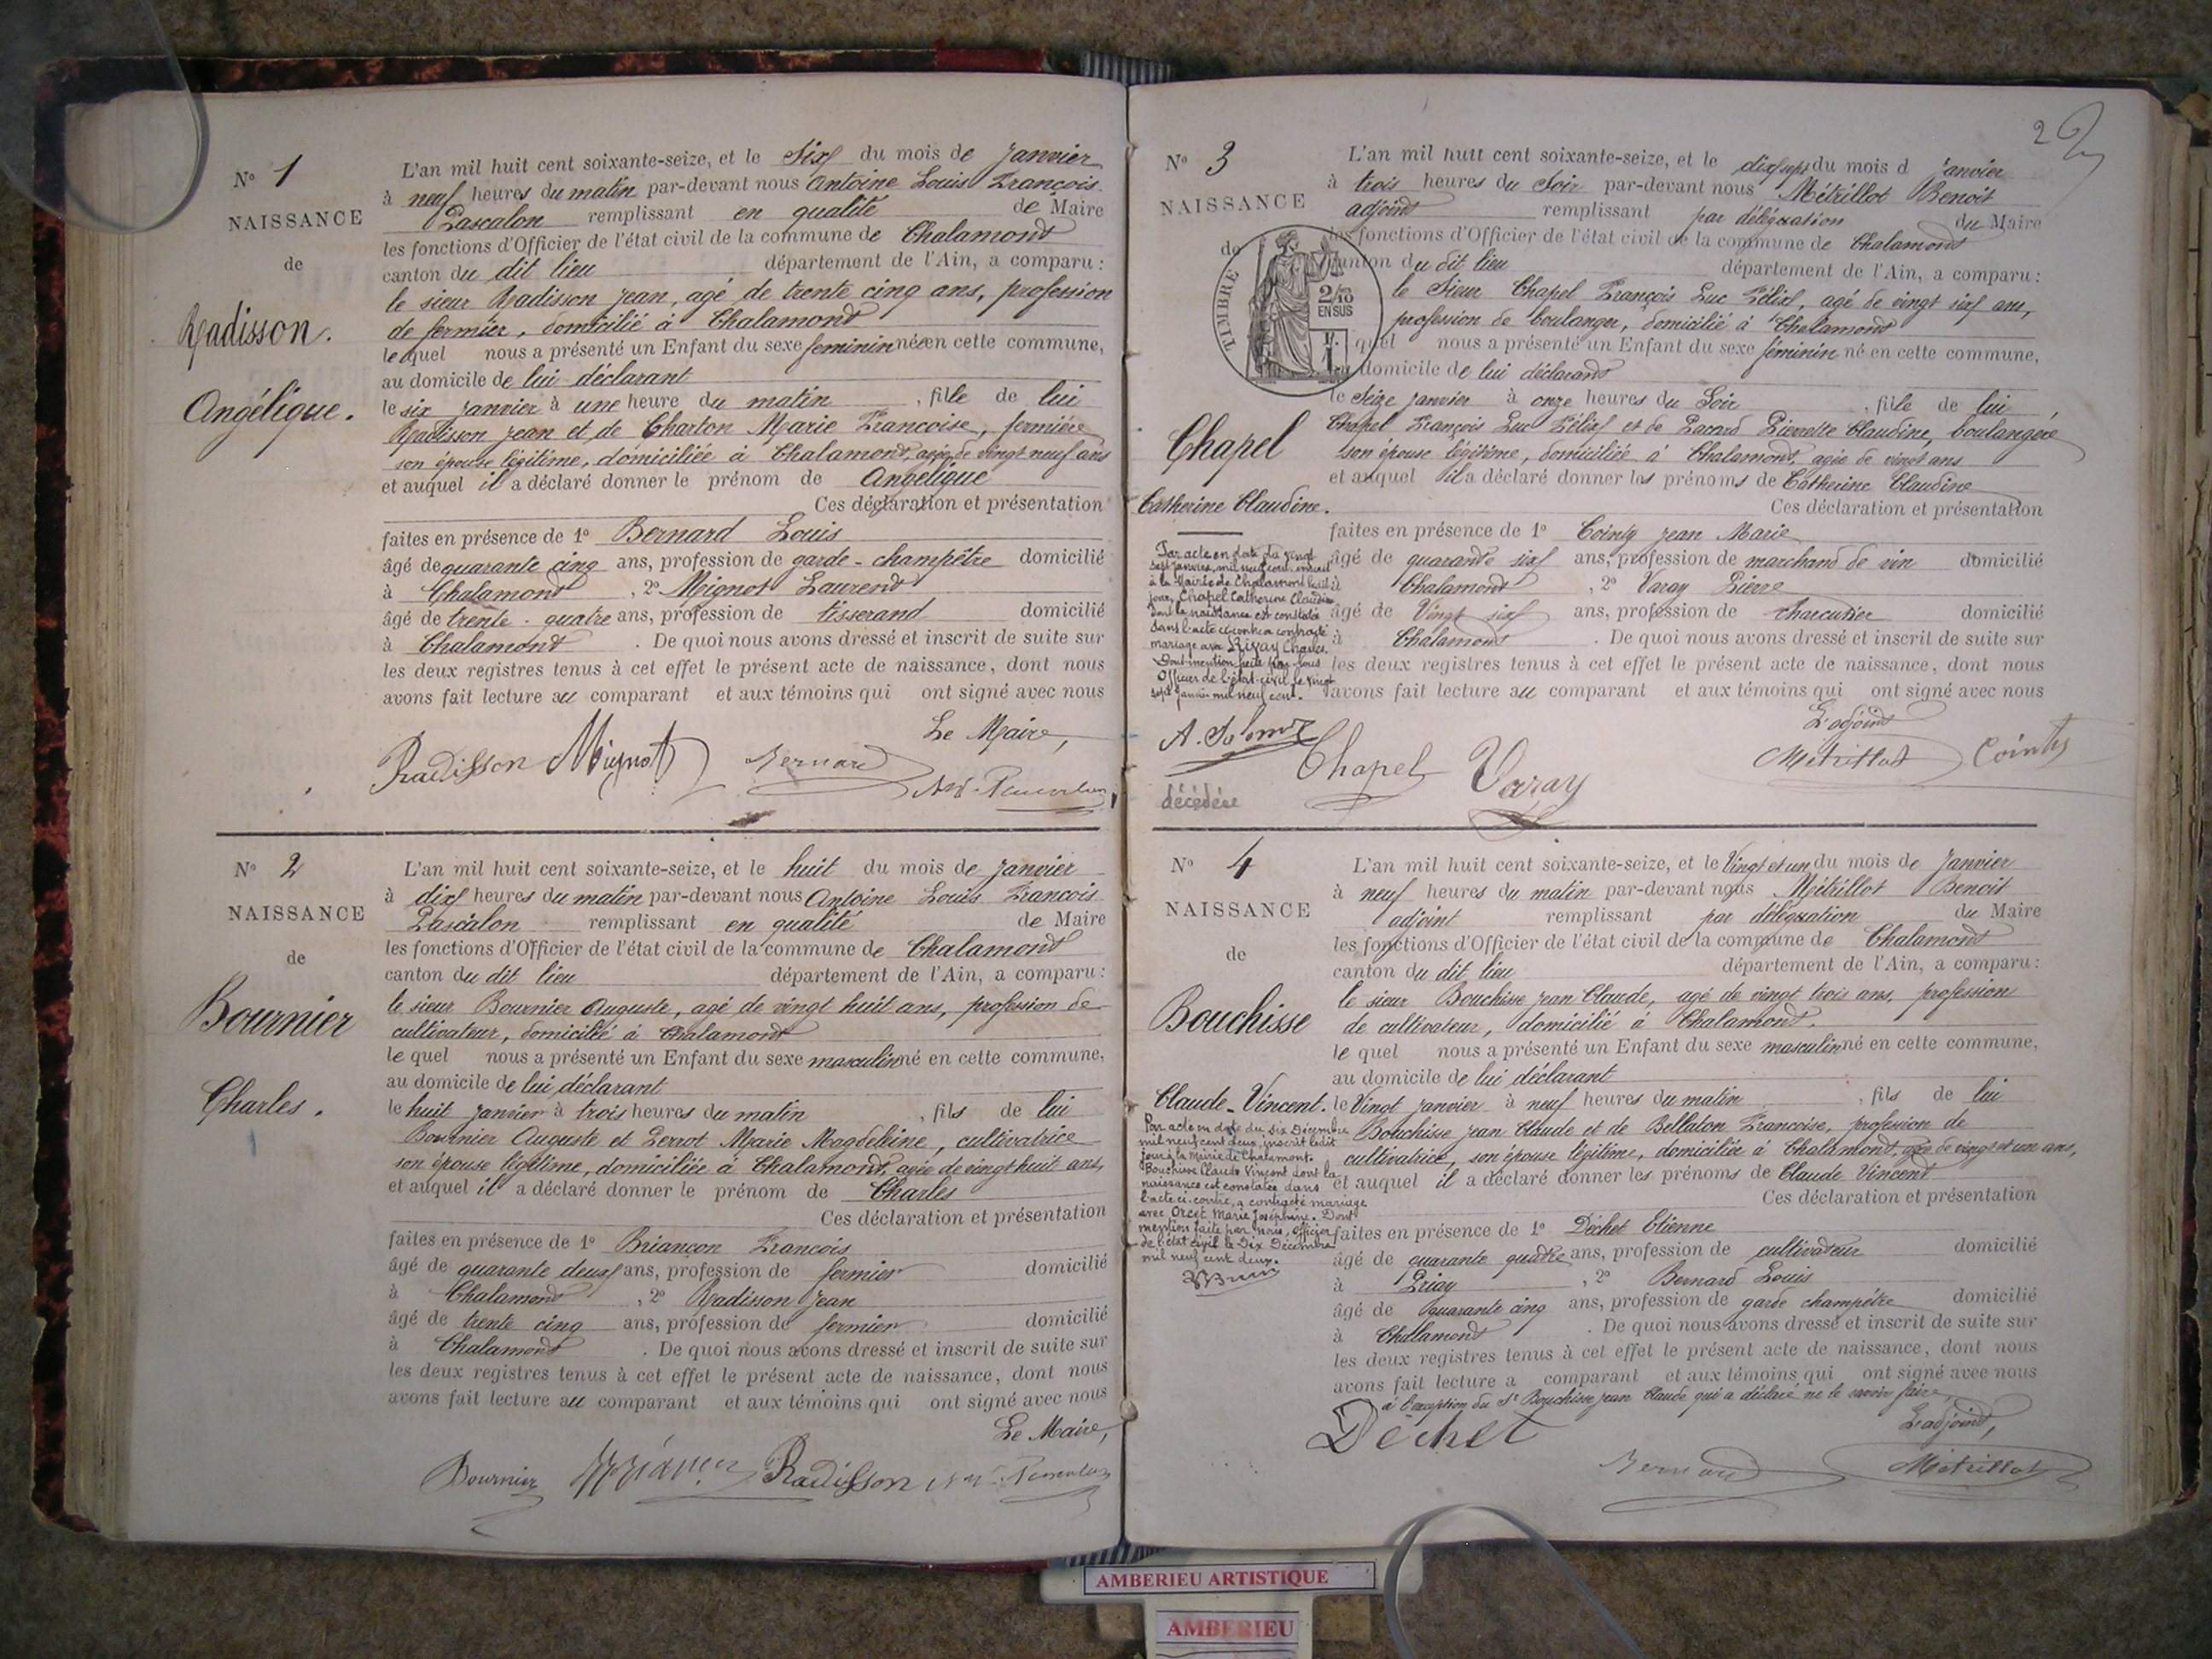 N° 1
NAISSANCE
de
Radisson.
Angélique.
L'an mil huit cent soixante-seize, et le Six du mois de Janvier
à neuf heures du matin par-devant nous Antoine Louis François
Pascalon remplissant en qualité de Maire
les fonctions d'Officier de l'état civil de la commune de Chalamont
canton du dit lieu département de l'Ain, a comparu :
le sieur Radisson Jean, agé de trente cinq ans, profession
de fermier, domicilié à Chalamont
le quel nous a présenté un Enfant du sexe feminin née en cette commune,
au domicile de lui déclarant
le six janvier à une heure du matin , fille de lui
Radisson Jean et de Charton Marie Francoise, fermière
son épouse légitime, domiciliée à Chalamont, agée de vingt neuf ans
et auquel il a déclaré donner le prénom de Angélique
Ces déclaration et présentation
faites en présence de 1° Bernard Louis
âgé de quarante cinq ans, profession de garde-champêtre domicilié
à Chalamont , 2° Mignot Laurent
âgé de trente-quatre ans, profession de tisserand domicilié
à Chalamont . De quoi nous avons dressé et inscrit de suite sur
les deux registres tenus à cet effet le présent acte de naissance, dont nous
avons fait lecture au comparant et aux témoins qui ont signé avec nous
Le Maire,
Radisson Mignot Bernard
N° 2
NAISSANCE
de
Bournier
Charles.
L'an mil huit cent soixante-seize, et le huit du mois de Janvier
à dix heures du matin par-devant nous Antoine Louis Francois
Pascalon remplissant en qualité de Maire
les fonctions d'Officier de l'état civil de la commune de Chalamont
canton du dit lieu département de l'Ain, a comparu :
le sieur Bournier Auguste, agé de vingt huit ans, profession de
cultivateur, domicilié à Chalamont
le quel nous a présenté un Enfant du sexe masculin né en cette commune,
au domicile de lui déclarant
le huit janvier à trois heures du matin , fils de lui
Bournier Auguste et Perrot Marie Magdeleine, cultivatrice
son épouse légitime, domiciliée à Chalamont, agée de vingt huit ans,
et auquel il a déclaré donner le prénom de Charles
Ces déclaration et présentation
faites en présence de 1° Briançon Francois
âgé de quarante deux ans, profession de fermier domicilié
à Chalamont , 2° Radisson Jean
âgé de trente cinq ans, profession de fermier domicilié
à Chalamont . De quoi nous avons dressé et inscrit de suite sur
les deux registres tenus à cet effet le présent acte de naissance, dont nous
avons fait lecture au comparant et aux témoins qui ont signé avec nous
Le Maire,
Bournier Radisson
2
N° 3
NAISSANCE
de
TIMBRE
2/10
EN SUS
Chapel
Catherine Claudine.
Par acte en date du vingt
sept janvier mil neuf cent inscrit
à la Mairie de Chalamont ledit
jour, Chapel Catherine Claudine
dont la naissance est constatée
dans l'acte ci-contre a contracté
mariage avec Rivay Charles.
Dont mention faite par nous
Officier de l'état-civil le vingt
sept janvier mil neuf cent.
décédée
L'an mil huit cent soixante-seize, et le dix sept du mois d Janvier
à trois heures du Soir par-devant nous Métrillot Benoit
adjoint remplissant par délégation du Maire
les fonctions d'Officier de l'état civil de la commune de Chalamont
canton du dit lieu département de l'Ain, a comparu :
le Sieur Chapel François Luc Félix, agé de vingt six ans,
profession de boulanger, domicilié à Chalamont
quel nous a présenté un Enfant du sexe féminin né en cette commune,
domicile de lui déclarant
le Seize janvier à onze heures du Soir , fille de lui
Chapel François Luc Félix et de Pacard Pierrette Claudine, boulangère
son épouse légitime, domiciliée à Chalamont, agée de vingt ans
et auquel il a déclaré donner les prénoms de Catherine Claudine
Ces déclaration et présentation
faites en présence de 1° Cointy Jean Marie
âgé de quarante six ans, profession de marchand de vin domicilié
à Chalamont , 2° Varay Pierre
âgé de Vingt six ans, profession de charcutier domicilié
à Chalamont . De quoi nous avons dressé et inscrit de suite sur
les deux registres tenus à cet effet le présent acte de naissance, dont nous
avons fait lecture au comparant et aux témoins qui ont signé avec nous
L'adjoint
Chapel Varay Métrillot Cointy
N° 4
NAISSANCE
de
Bouchisse
Claude-Vincent.
Par acte en date du six Décembre
mil neuf cent deux inscrit ledit
jour à la Mairie de Chalamont.
Bouchisse Claude Vincent dont la
naissance est constatée dans
l'acte ci-contre, a contracté mariage
avec Orcet Marie Joséphine. Dont
mention faite par nous, officier
de l'état civil le Dix Décembre
mil neuf cent deux.
L'an mil huit cent soixante-seize, et le Vingt et un du mois de Janvier
à neuf heures du matin par-devant nous Métrillot Benoit
adjoint remplissant par délégation du Maire
les fonctions d'Officier de l'état civil de la commune de Chalamont
canton du dit lieu département de l'Ain, a comparu :
le sieur Bouchisse Jean Claude, agé de vingt trois ans, profession
de cultivateur, domicilié à Chalamont.
le quel nous a présenté un Enfant du sexe masculin né en cette commune,
au domicile de lui déclarant
le Vingt janvier à neuf heures du matin , fils de lui
Bouchisse Jean Claude et de Bellaton Francoise, profession de
cultivatrice, son épouse légitime, domiciliée à Chalamont, agée de vingt et un ans,
et auquel il a déclaré donner les prénoms de Claude Vincent
Ces déclaration et présentation
faites en présence de 1° Déchet Etienne
âgé de quarante quatre ans, profession de cultivateur domicilié
à Priay , 2° Bernard Louis
âgé de quarante cinq ans, profession de garde champêtre domicilié
à Chalamont . De quoi nous avons dressé et inscrit de suite sur
les deux registres tenus à cet effet le présent acte de naissance, dont nous
avons fait lecture a comparant et aux témoins qui ont signé avec nous
à l'exception du Sr Bouchisse Jean Claude qui a déclaré ne le savoir faire,
L'adjoint,
Déchet Bernard Métrillot
AMBERIEU ARTISTIQUE
AMBERIEU